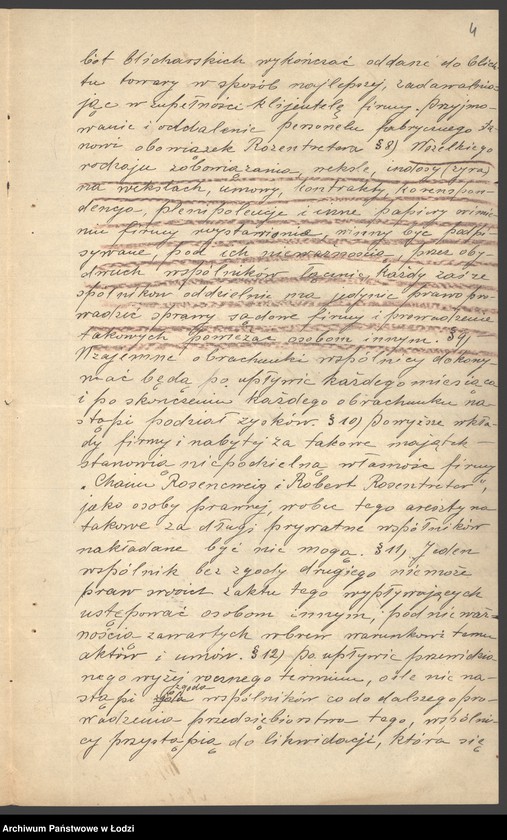 4
bót blicharskich wykończać oddane do blichu
tu towary w sposób najlepszy, zadawalnia-
jąc w zupełności klijentelę firmy. Przyjmo-
wanie i oddalenie personelu fabrycznego sta-
nowi obowiązek Rozentretera § 8) Wszelkiego
rodzaju zobowiązania, weksle, indosy (żyra)
na wekslach, umowy, kontrakty, korespon-
dencja, plenipotencje i inne papiery w imie-
niu firmy wystawione, winny być podpi-
sywane, pod ich nieważnością, przez oby-
dwuch wspólników łącznie, każdy zaś ze
spólników oddzielnie ma jedynie prawo pro-
wadzić sprawy sądowe firmy i prowadzenie
takowych powierzać osobom innym. § 9)
Wzajemne obrachunki wspólnicy dokony-
wać będą po upływie każdego miesiąca
i po skończeniu każdego obrachunku na-
stąpi podział zysków. § 10) Powyższe wkła-
dy firmy i nabyty za takowe majątek
stanowią niepodzielną własność firmy
"Chaim Rosencweig i Robert Rosentreter",
jako osoby prawnej, wobec tego areszty na
takowe za długi prywatne wspólników
nakładane być nie mogą. § 11) Jeden
wspólnik bez zgody drugiego nie może
praw swoich z aktu tego wypływających
ustępować osobom innym, pod nieważ-
nością zawartych wbrew warunkowi temu
aktów i umów. § 12) Po upływie przewidzia-
nego wyżej rocznego terminu, o ile nie na-
stąpi zgoda wspólników co do dalszego pro-
wadzenia przedsiębiorstwa tego, wspólni-
cy przystąpią do likwidacji, która się
Archiwum Państwowe w Łodzi